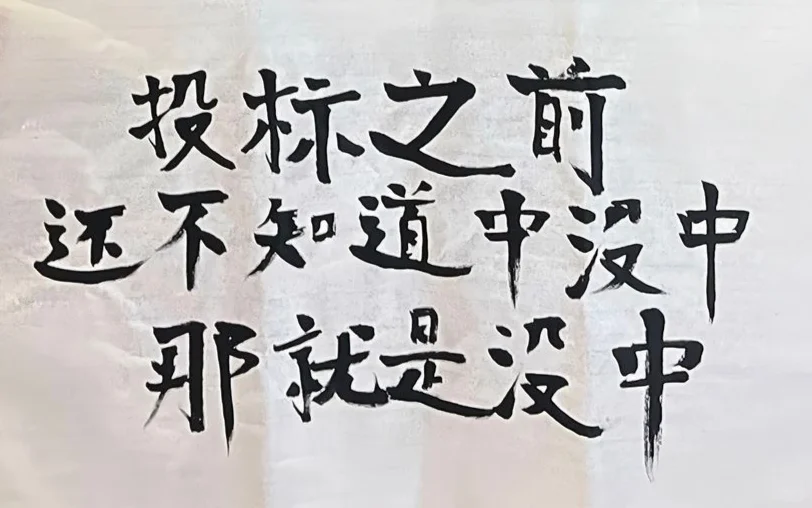 投标之前
还不知道中没中
那就是没中